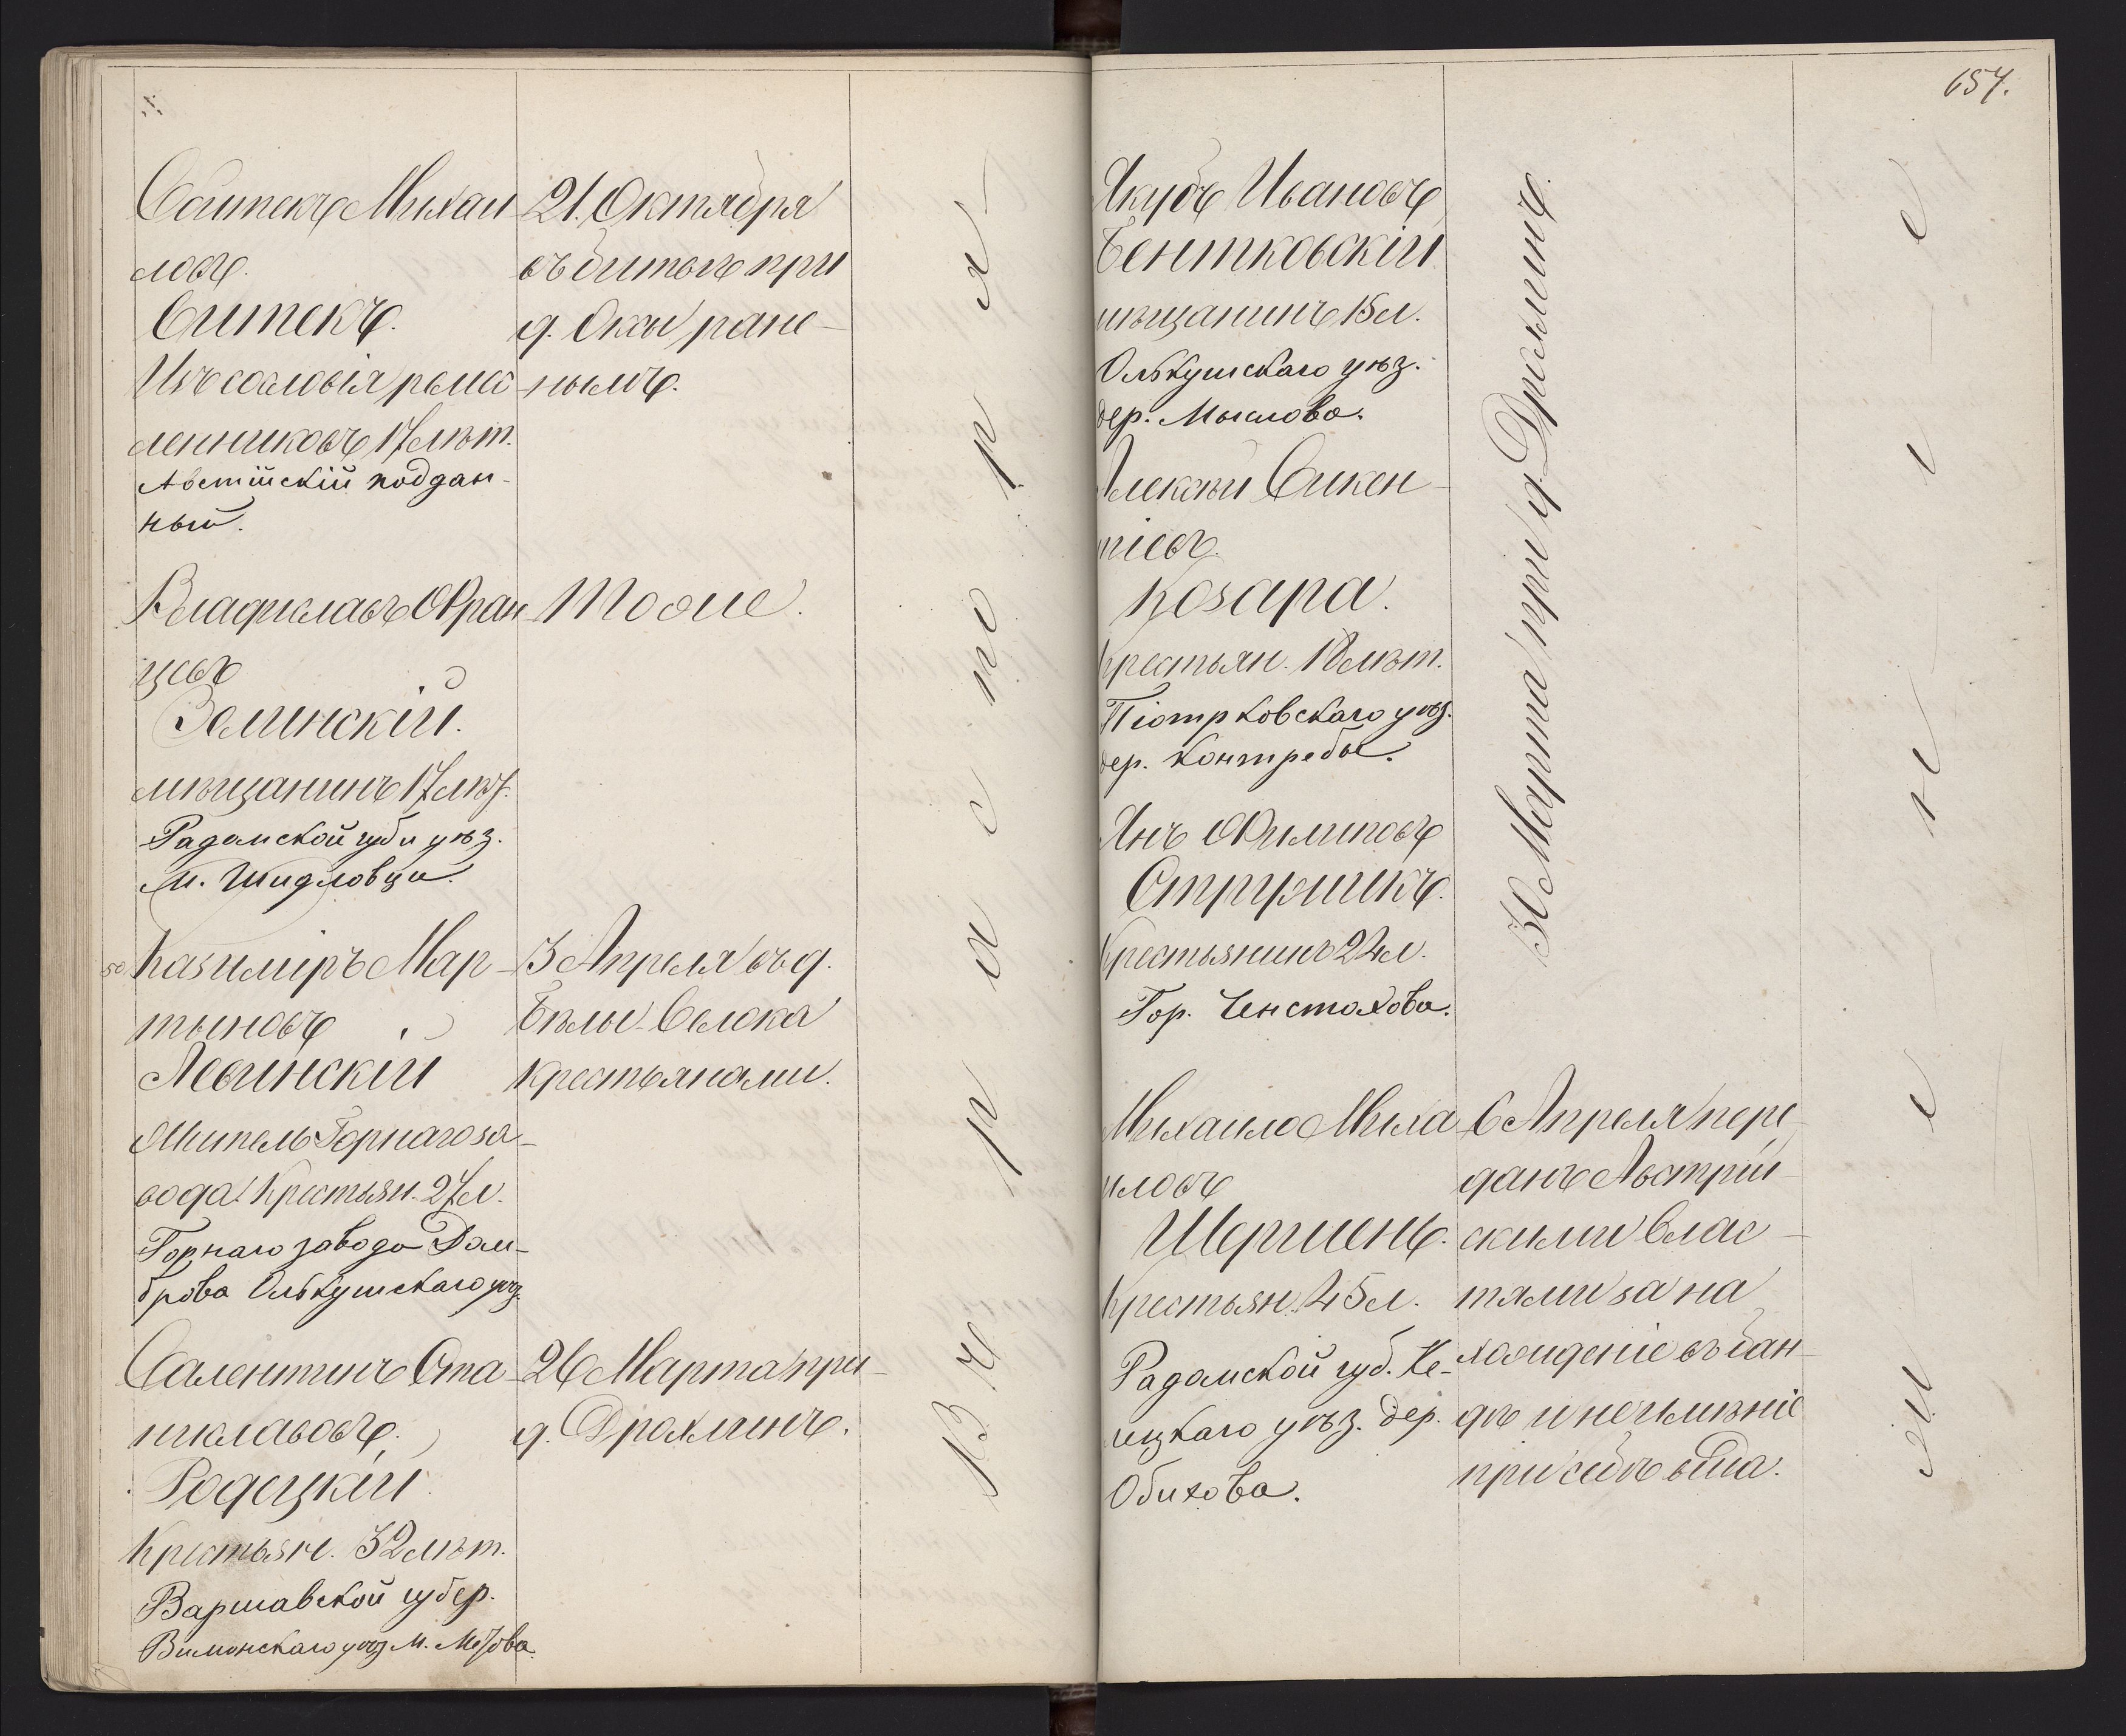 Войтекъ Михаи
ловъ.
Витекъ.
Изъ сословія ремес
ленниковъ 17 лѣт.
Австійскій поддан-
ный.
Владиславъ Фран
цовъ
Зелинскій.
мѣщанинъ 17 лѣт.
Радомской губ и уѣз.
М. Шидловци.
50 Казиміръ Мар-
тыновъ
Левинскій
Житель Горнаго за-
вода Крестьян. 27 л.
Горнаго завода Дом-
брова Олькушскаго уѣз.
Валентинъ Ста
ниславовъ.
Родецкій
Крестьян. 32 лѣт.
Варшавской губер.
м.
21. Октября
въ битвѣ при
д. Оксы ране-
нымъ.
Тоже.
3 Апреля въ д.
Бѣлы-Велока
крестьянами.
26 Марта при
д. Дрохлинъ.
657.
Якубъ Ивановъ
Бентковскій
мѣщанинъ 15 л.
Олькушскаго уѣз.
дер. Мыслова.
Алексѣй Викен-
тіевъ.
Козара.
Крестьян. 18 лѣт.
Піотрковскаго уѣз.
дер. Контребы.
Янъ Филиповъ
Стружикъ.
Крестьянинъ 22 л.
Гор. Ченстохова.
Михаило Миха
иловъ
Шершень.
Крестьян. 45 л.
Радомской губ. Ке-
лецкаго уѣз. дер.
Обихова.
30 Марта при д. Дрохлинъ.
6 Апреля пере-
данъ Австрій-
скими влас-
тями за на
хожденіе въ бан-
дѣ и неимѣніе
при себѣ вида.